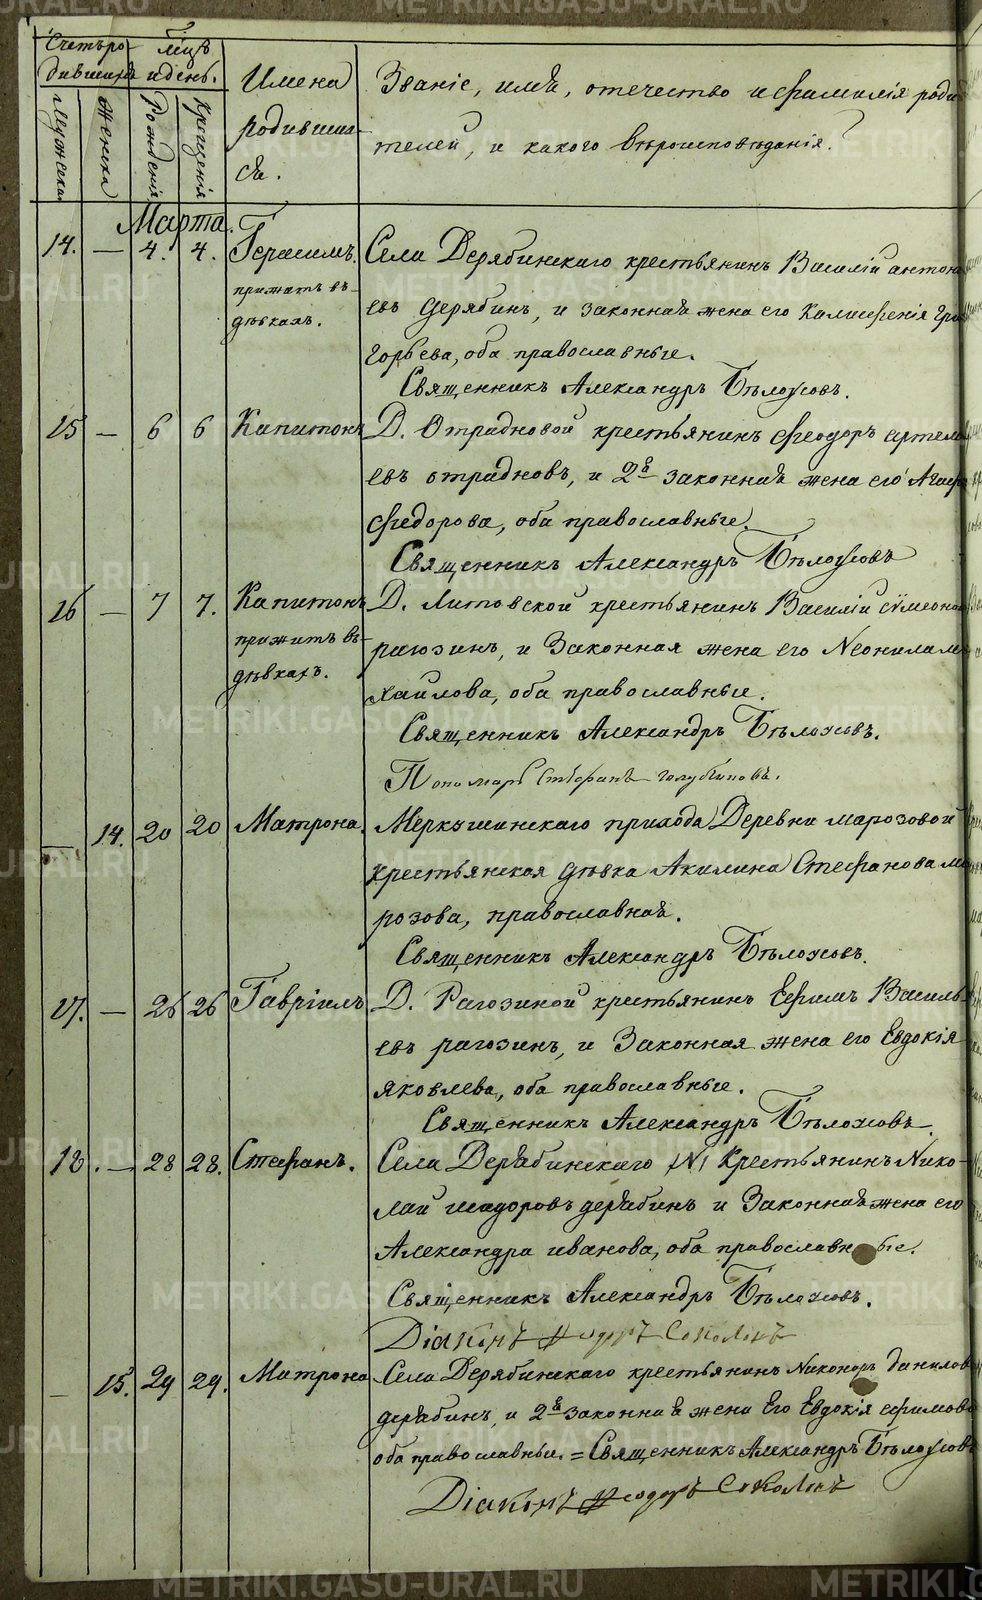 Счетъ ро-
дившихъ
Мѣцъ
и день.
мужеска
женска
рожденія
крещенія
Имена
родивших-
ся.
Званіе, имя, отечество и фамилія роди-
телей, и какого вѣроисповѣданія.
Марта.
14. — 4. 4. Герасимъ.
прижатъ въ
дѣвкахъ.
Села Дерябинскаго крестьянинъ Василій антонь
евъ дерябинъ, и законная жена его Калисфенія Гри
горьева, оба православные.
Священникъ Александръ Бѣлоусовъ.
15 — 6 6 Капитонъ
Д. Отрадновой крестьянинъ Феодоръ артемь
евъ отрадновъ, и 2я законная жена его Агаф
Федорова, оба православные.
Священникъ Александръ Бѣлоусовъ
16 — 7 7. Капитонъ
прижитъ въ
дѣвкахъ.
Д. Литовской крестьянинъ Василій сѵмеонов
рагозинъ, и Законная жена его Неонила ми
хаилова, оба православные.
Священникъ Александръ Бѣлоусовъ.
Пономарь Стефанъ голубчиковъ.
— 14. 20 20 Матрона.
Меркушинскаго прихода Деревни марозовой
крестьянская дѣвка Акилина Стефанова мо
розова, православная.
Священникъ Александръ Бѣлоусовъ.
17. — 26 26 Гавріилъ
Д. Рагозиной крестьянинъ Ефимъ Василь-
евъ рагозинъ, и Законная жена его Евдокія
яковлева, оба православные.
Священникъ Александръ Бѣлоусовъ.
18. — 28 28. Стефанъ.
Села Дерябинскаго крестьянинъ Нико-
лай дерябинъ и Законная жена его
Александра иванова, оба православные.
Священникъ Александръ Бѣлоусовъ.
Діаконъ Феодоръ Соколовъ
— 15. 29 29. Матрона
Села Дерябинскаго крестьянинъ Никоноръ данилов
дерябинъ, и 2я законная жена Его Евдокія ефимова
оба православные. = Священникъ Александръ Бѣлоусовъ
Діаконъ Феодоръ Соколовъ
METRIKI.GASO-URAL.RU